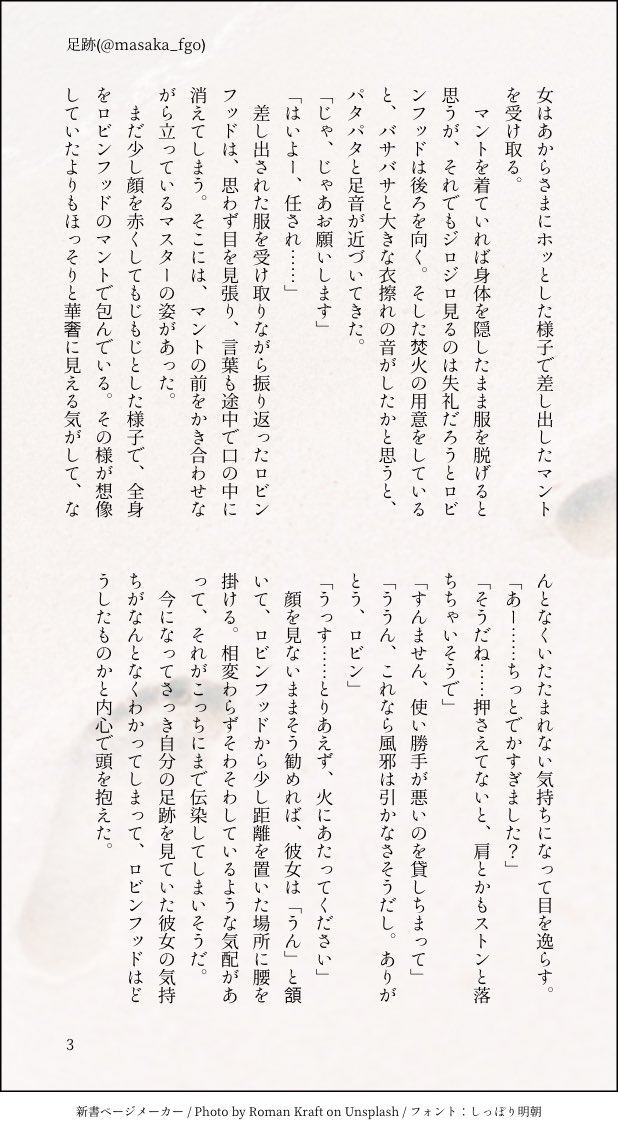 足跡(@masaka_fgo)
女はあからさまにホッとした様子で差し出したマント
を受け取る。
マントを着ていれば身体を隠したまま服を脱げると
思うが、それでもジロジロ見るのは失礼だろうとロビ
ンフッドは後ろを向く。そした焚火の用意をしている
と、バサバサと大きな衣擦れの音がしたかと思うと、
パタパタと足音が近づいてきた。
「じゃ、じゃあお願いします」
「はいよー、任され……」
差し出された服を受け取りながら振り返ったロビン
フッドは、思わず目を見張り、言葉も途中で口の中に
消えてしまう。そこには、マントの前をかき合わせな
がら立っているマスターの姿があった。
まだ少し顔を赤くしてもじもじとした様子で、全身
をロビンフッドのマントで包んでいる。その様が想像
していたよりもほっそりと華奢に見える気がして、な
んとなくいたたまれない気持ちになって目を逸らす。
「あー……ちっとでかすぎました？」
「そうだね……押さえてないと、肩とかもストンと落
ちちゃいそうで」
「すんません、使い勝手が悪いのを貸しちまって」
「ううん、これなら風邪は引かなさそうだし。ありが
とう、ロビン」
「うっす……とりあえず、火にあたってください」
顔を見ないままそう勧めれば、彼女は「うん」と頷
いて、ロビンフッドから少し距離を置いた場所に腰を
掛ける。相変わらずそわそわしているような気配があ
って、それがこっちにまで伝染してしまいそうだ。
今になってさっき自分の足跡を見ていた彼女の気持
ちがなんとなくわかってしまって、ロビンフッドはど
うしたものかと内心で頭を抱えた。
3
新書ページメーカー / Photo by Roman Kraft on Unsplash / フォント：しっぽり明朝